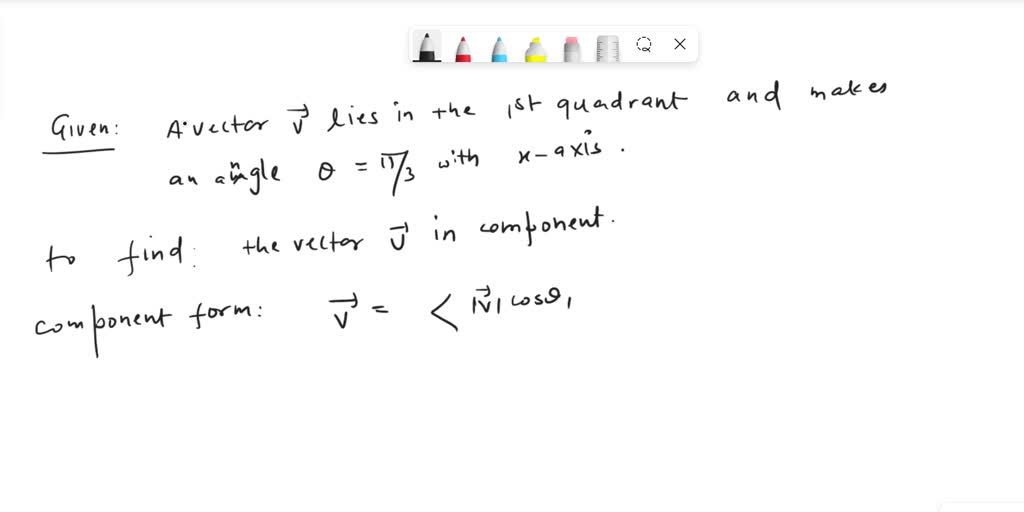 Given: A vector v⃗ lies in the 1st quadrant and makes
an angle θ = π/3 with x-axis.
to find: the vector v⃗ in component.
component form: v⃗ = < |v⃗| cosθ,